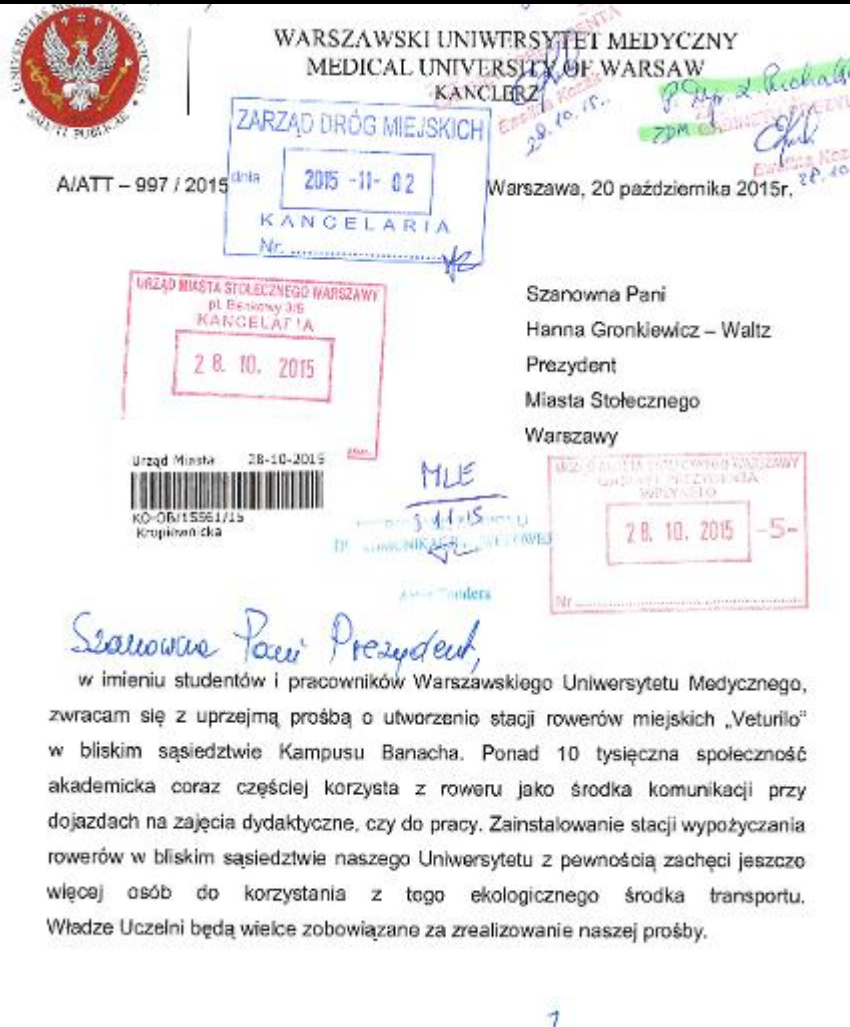 WARSZAWSKI UNIWERSYTET MEDYCZNY
MEDICAL UNIVERSITY OF WARSAW
KANCLERZ
28.10.15.
ZDM
28.10
ZARZĄD DRÓG MIEJSKICH
dnia 2015 -11- 02
KANCELARIA
Nr.
A/ATT – 997 / 2015
Warszawa, 20 października 2015r.
URZĄD MIASTA STOŁECZNEGO WARSZAWY
pl. Bankowy 3/5
KANCELARIA
28. 10. 2015
Szanowna Pani
Hanna Gronkiewicz – Waltz
Prezydent
Miasta Stołecznego
Warszawy
Urząd Miasta 28-10-2015
KO-OB/15561/15
Kropiewnicka
MLE
3.11.15
GABINET PREZYDENTA
WPŁYNĘŁO
28. 10. 2015 -5-
Nr
Szanowna Pani Prezydent,
w imieniu studentów i pracowników Warszawskiego Uniwersytetu Medycznego,
zwracam się z uprzejmą prośbą o utworzenie stacji rowerów miejskich „Veturilo”
w bliskim sąsiedztwie Kampusu Banacha. Ponad 10 tysięczna społeczność
akademicka coraz częściej korzysta z roweru jako środka komunikacji przy
dojazdach na zajęcia dydaktyczne, czy do pracy. Zainstalowanie stacji wypożyczania
rowerów w bliskim sąsiedztwie naszego Uniwersytetu z pewnością zachęci jeszcze
więcej osób do korzystania z tego ekologicznego środka transportu.
Władze Uczelni będą wielce zobowiązane za zrealizowanie naszej prośby.